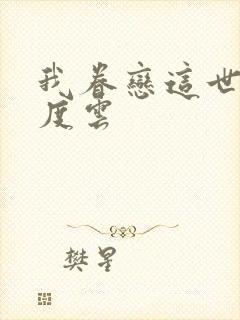 我眷戀這世
度雲
樊星